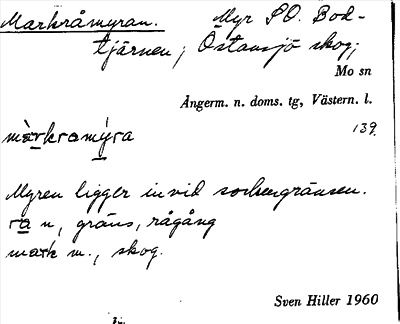 Markråmyran. Myr SO. Bod-
tjärnen; Östansjö skog;
Mo sn
Ångerm. n. doms. tg, Västern. l.
139.
màrkramy̲ra
Myren ligger invid sockengränsen.
ra n, gräns, rågång
mark m., skog.
Sven Hiller 1960